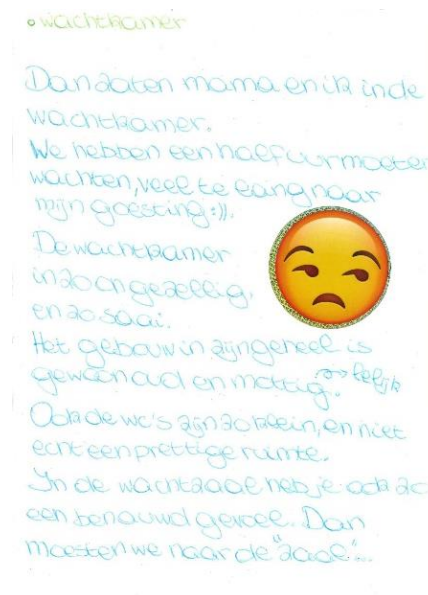 • wachtkamer
Dan zaten mama en ik in de
wachtkamer.
We hebben een half uur moeten
wachten, veel te lang naar
mijn goesting :)).
De wachtkamer
is zo ongezellig,
en zo saai.
Het gebouw in zijn geheel is
gewoon oud en mottig. → lelijk
Ook de wc's zijn zo klein, en niet
echt een prettige ruimte.
In de wachtzaal heb je ook zo
een benauwd gevoel. Dan
moesten we naar de "zaal"...